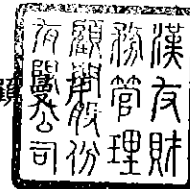 漢友財
務管理
顧問股份
有限公司